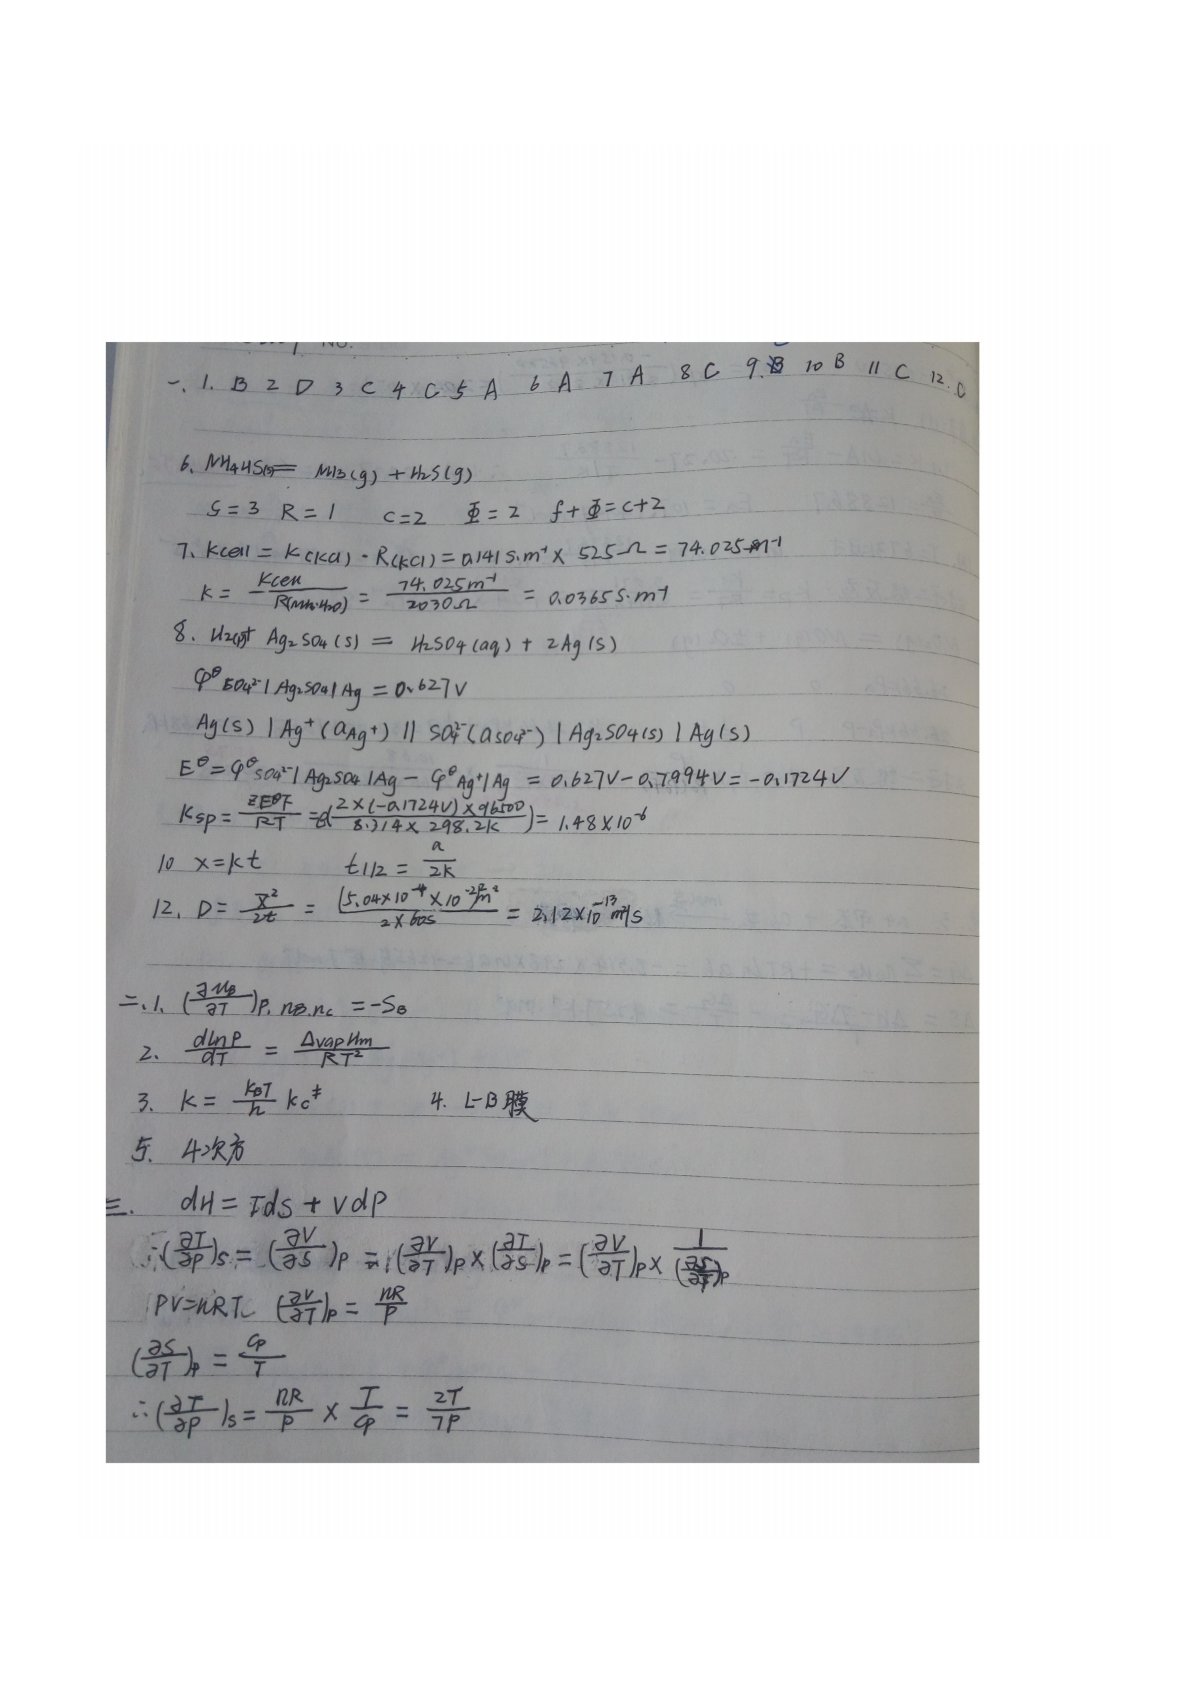 No.
一. 1. B 2 D 3 C 4 C 5 A 6 A 7 A 8 C 9. B 10 B 11 C 12. D
6. NH4HS(s) = NH3(g) + H2S(g)
S=3 R=1 C=2 Φ=2 f+Φ=C+2
7. Kcell = K(KCl) · R(KCl) = 0.141 S·m⁻¹ × 525Ω = 74.025 m⁻¹
K = Kcell / R(NH3·H2O) = 74.025m⁻¹ / 2030Ω = 0.0365 S·m⁻¹
8. H2(p) + Ag2SO4(s) = H2SO4(aq) + 2Ag(s)
φ^θ SO4²⁻|Ag2SO4|Ag = 0.627V
Ag(s) | Ag⁺(a Ag⁺) || SO4²⁻(a SO4²⁻) | Ag2SO4(s) | Ag(s)
E^θ = φ^θ SO4²⁻|Ag2SO4|Ag − φ^θ Ag⁺|Ag = 0.627V − 0.7994V = −0.1724V
Ksp = ZE^θF / RT = e(2×(−0.1724V)×96500 / 8.314×298.2K) = 1.48×10⁻⁶
10 x=kt t1/2 = a/2k
12. D = x̄²/2t = (5.04×10⁻⁴×10⁻²)²m² / 2×60s = 2.12×10⁻¹³ m²/s
二. 1. (∂μB/∂T)P, nB, nC = −SB
2. dlnP/dT = ΔvapHm/RT²
3. k = kBT/h Kc^≠ 4. L-B膜
5. 4次方
三. dH = Tds + VdP
∴ (∂T/∂P)S = (∂V/∂S)P = (∂V/∂T)P × (∂T/∂S)P = (∂V/∂T)P × 1/(∂S/∂T)P
PV=nRT (∂V/∂T)P = nR/P
(∂S/∂T)P = CP/T
∴ (∂T/∂P)S = nR/P × T/CP = 2T/7P